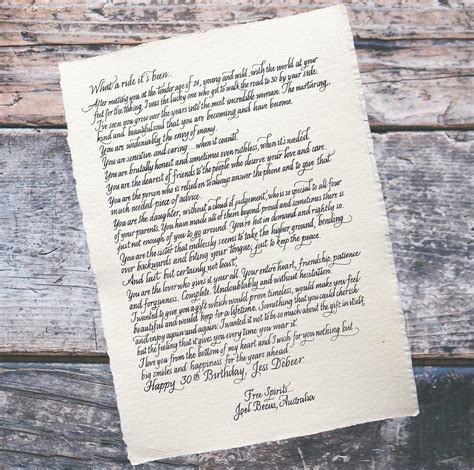 What a ride it's been..
After meeting you at the tender age of 24, young and wild, with the world at your
feet for the taking. I was the lucky one who got to walk the road to 30 by your side.
I've seen you grow over the years into the most incredible woman. The nurturing,
kind and beautiful soul that you are becoming and have become.
You are undeniably the envy of many.
You are sensitive and caring ... when it counts!
You are brutally honest and sometimes even ruthless, when it's needed.
You are the dearest of friends to the people who deserve your love and care.
You are the person who is relied on to always answer the phone and to give that
much needed piece of advice.
You are the daughter, without a cloud of judgement, who is so special to all four
of your parents. You have made all of them beyond proud and sometimes there is
just not enough of you to go around. You're hot in demand and rightly so.
You are the sister that endlessly seems to take the higher ground, bending
over backwards and biting your tongue, just to keep the peace.
And last but certainly not least,
You are the lover who gives it your all. Your entire heart, friendship, patience
and forgiveness. Complete. Undoubtably and without hesitation.
I wanted to give you a gift which would prove timeless, would make you feel
beautiful and would keep for a lifetime. Something that you could cherish
and enjoy again and again. I wanted it not to be so much about the gift in itself,
but the feeling that it gives you every time you wear it.
I love you from the bottom of my heart and I wish for you nothing but
big smiles and happiness for the years ahead.
Happy 30th Birthday, Jess Debeer
Free Spirits
Joel Becus, Australia